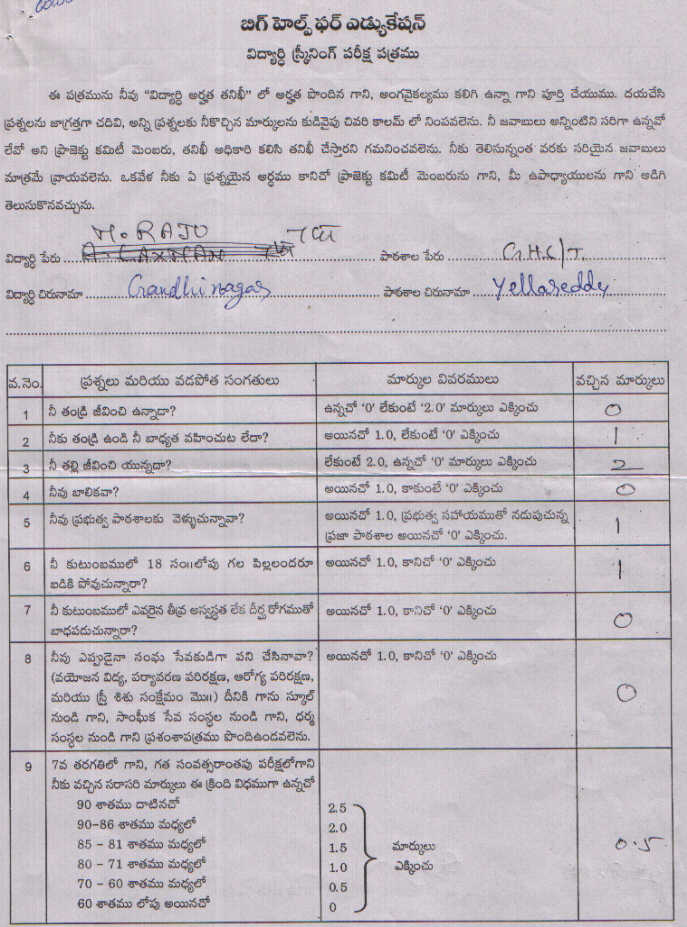 బిగ్ హెల్ప్ ఫర్ ఎడ్యుకేషన్
విద్యార్థి స్క్రీనింగ్ పరీక్ష పత్రము
ఈ పత్రమును నీవు "విద్యార్థి అర్హత తనిఖీ" లో అర్హత పొందిన గాని, అంగవైకల్యము కలిగి ఉన్నా గాని పూర్తి చేయుము. దయచేసి
ప్రశ్నలను జాగ్రత్తగా చదివి, అన్ని ప్రశ్నలకు నీకొచ్చిన మార్కులను కుడివైపు చివరి కాలమ్ లో నింపవలెను. నీ జవాబులు అన్నింటిని సరిగా ఉన్నవో
లేవో అని ప్రాజెక్టు కమిటీ మెంబరు, తనిఖీ అధికారి కలిసి తనిఖీ చేస్తారని గమనించవలెను. నీకు తెలిసినంత వరకు సరియైన జవాబులు
మాత్రమే వ్రాయవలెను. ఒకవేళ నీకు ఏ ప్రశ్నయైన అర్ధము కానిచో ప్రాజెక్టు కమిటీ మెంబరును గాని, మీ ఉపాధ్యాయులను గాని అడిగి
తెలుసుకొనవచ్చును.
M. RAJU 7th
విద్యార్థి పేరు A. LAXMAN 7th పాఠశాల పేరు G.H.S/T.
విద్యార్థి చిరునామా Gandhi nagar పాఠశాల చిరునామా Yellareddy
వ.నెం. ప్రశ్నలు మరియు వడపోత సంగతులు మార్కుల వివరములు వచ్చిన మార్కులు
1 నీ తండ్రి జీవించి ఉన్నాడా? ఉన్నచో '0' లేకుంటే '2.0' మార్కులు ఎక్కించు 0
2 నీకు తండ్రి ఉండి నీ బాధ్యత వహించుట లేదా? అయినచో 1.0, లేకుంటే '0' ఎక్కించు 1
3 నీ తల్లి జీవించి యున్నదా? లేకుంటే 2.0, ఉన్నచో '0' మార్కులు ఎక్కించు 2
4 నీవు బాలికవా? అయినచో 1.0, కాకుంటే '0' ఎక్కించు 0
5 నీవు ప్రభుత్వ పాఠశాలకు వెళ్ళుచున్నావా? అయినచో 1.0, ప్రభుత్వ సహాయముతో నడుపుచున్న 1
ప్రజా పాఠశాల అయినచో '0' ఎక్కించు.
6 నీ కుటుంబములో 18 సం॥లోపు గల పిల్లలందరూ అయినచో 1.0, కానిచో '0' ఎక్కించు 1
బడికి పోవుచున్నారా?
7 నీ కుటుంబములో ఎవరైన తీవ్ర అస్వస్థత లేక దీర్ఘ రోగముతో అయినచో 1.0, కానిచో '0' ఎక్కించు 0
బాధపడుచున్నారా?
8 నీవు ఎప్పుడైనా సంఘ సేవకుడిగా పని చేసినావా? అయినచో 1.0, కానిచో '0' ఎక్కించు 0
(వయోజన విద్య, పర్యావరణ పరిరక్షణ, ఆరోగ్య పరిరక్షణ,
మరియు స్త్రీ శిశు సంక్షేమం మొ॥) దీనికి గాను స్కూల్
నుండి గాని, సాంఘీక సేవ సంస్థల నుండి గాని, ధర్మ
సంస్థల నుండి గాని ప్రశంశాపత్రము పొందిఉండవలెను.
9 7వ తరగతిలో గాని, గత సంవత్సరాంతపు పరీక్షలోగాని
నీకు వచ్చిన సరాసరి మార్కులు ఈ క్రింది విధముగా ఉన్నచో
90 శాతము దాటినచో 2.5
90-86 శాతము మధ్యలో 2.0
85 - 81 శాతము మధ్యలో 1.5 మార్కులు 0.5
80 - 71 శాతము మధ్యలో 1.0 ఎక్కించు
70 - 60 శాతము మధ్యలో 0.5
60 శాతము లోపు అయినచో 0